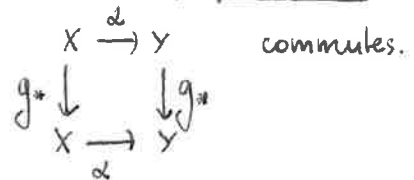 X →α Y commutes.
g* ↓ ↓ g*
X →α Y